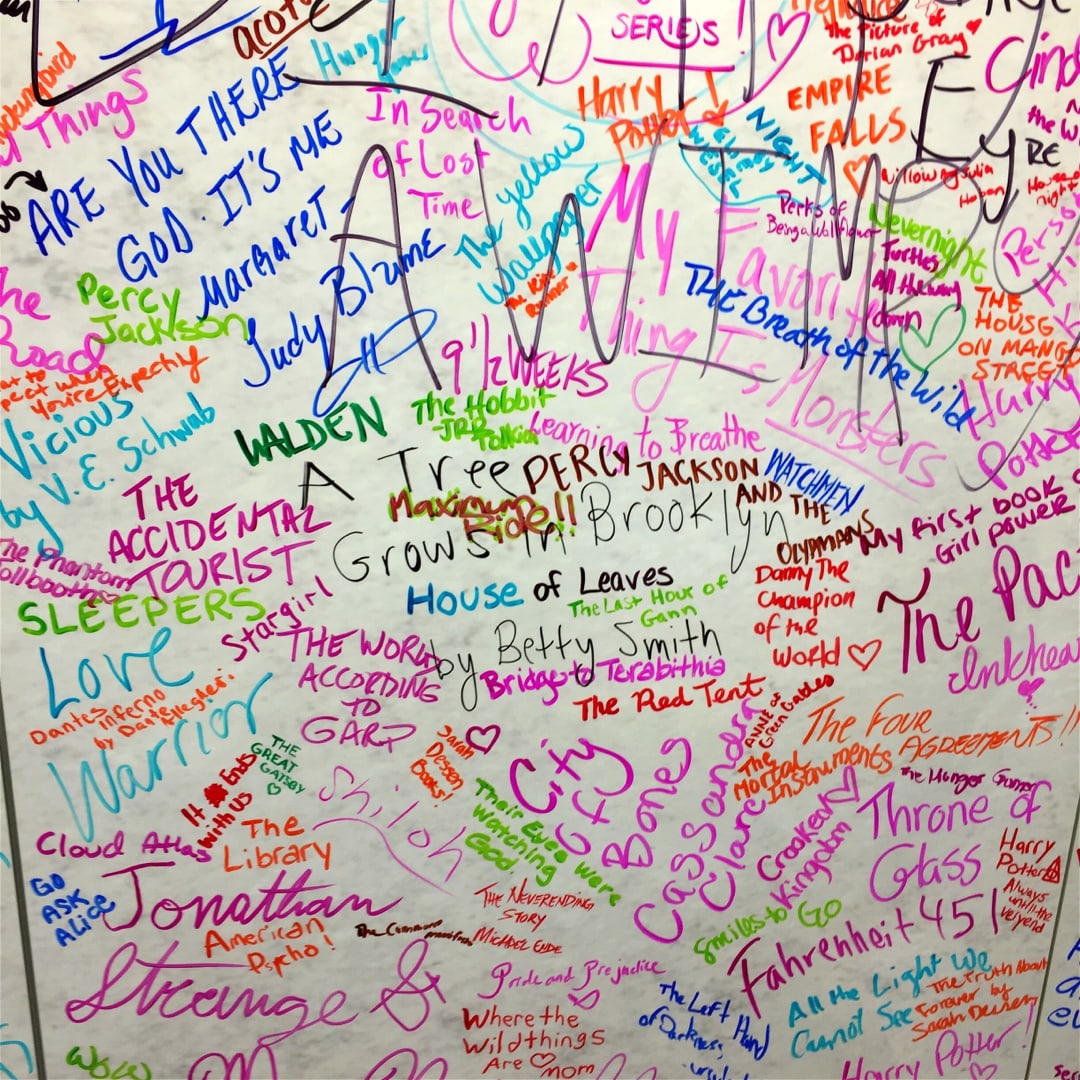 acotar
Hunger
Games
SERIES !
The Picture of
Dorian Gray
EMPIRE
FALLS
Harry
Potter
NIGHT
In Search
of Lost
Time
Things
ARE YOU THERE
GOD. IT'S ME
Margaret -
Judy Blume
The yellow
Wallpaper
The Kite
Runner
My Favorite
Thing Is Monsters
Perks of
Being a Wallflower
Nevernight
Turtles
All the way
down
EYRE
THE
HOUSE
ON MANGO
STREET
THE Breath of the Wild
Percy
Jackson
The
Road
what to
expect when
you're Expecting
Vicious
by V. E. Schwab
9 1/2 WEEKS
WALDEN
The Hobbit
JRR Tolkien
Learning to Breathe
Harry
Potter
A Tree
Grows in Brooklyn
by Betty Smith
PERCY JACKSON
AND THE
OLYPMANS
WATCHMEN
Maximum
Ride!!
My first book
Girl power
THE
ACCIDENTAL
TOURIST
The Phantom
Tollbooth
SLEEPERS
Stargirl
House of Leaves
The Last Hour of
Gann
Danny The
Champion
of the
World
The Pac
Inkhea
Love
Warrior
Dantes
inferno
by Dante Allegieri.
THE WORLD
ACCORDING
TO
GARP
Bridge to Terabithia
The Red Tent
Anne of
Green Gables
THE FOUR
AGREEMENTS!!
The
Mortal
Instruments
THE
GREAT
GATSBY
It Ends
with us
Sarah
Dessen
Books!
City
of
Bones
Cassandra
Clare
The Hunger Games
Throne of
Glass
Shiloh
Their Eyes were
Watching
God
Crooked
Kingdom
Cloud Atlas
The
Library
Harry
Potter
Always
until the
very end
GO
ASK
Alice
Jonathan
Strange &
American
Psycho!
THE NEVERENDING
STORY
MICHAEL ENDE
Smiles to GO
Fahrenheit 451
Pride and Prejudice
Where the
Wild things
Are
mom
The Left Hand
of Darkness,
All the Light We
Cannot See
The Truth About
Forever by
Sarah Dessen
Harry Potter!
WOW